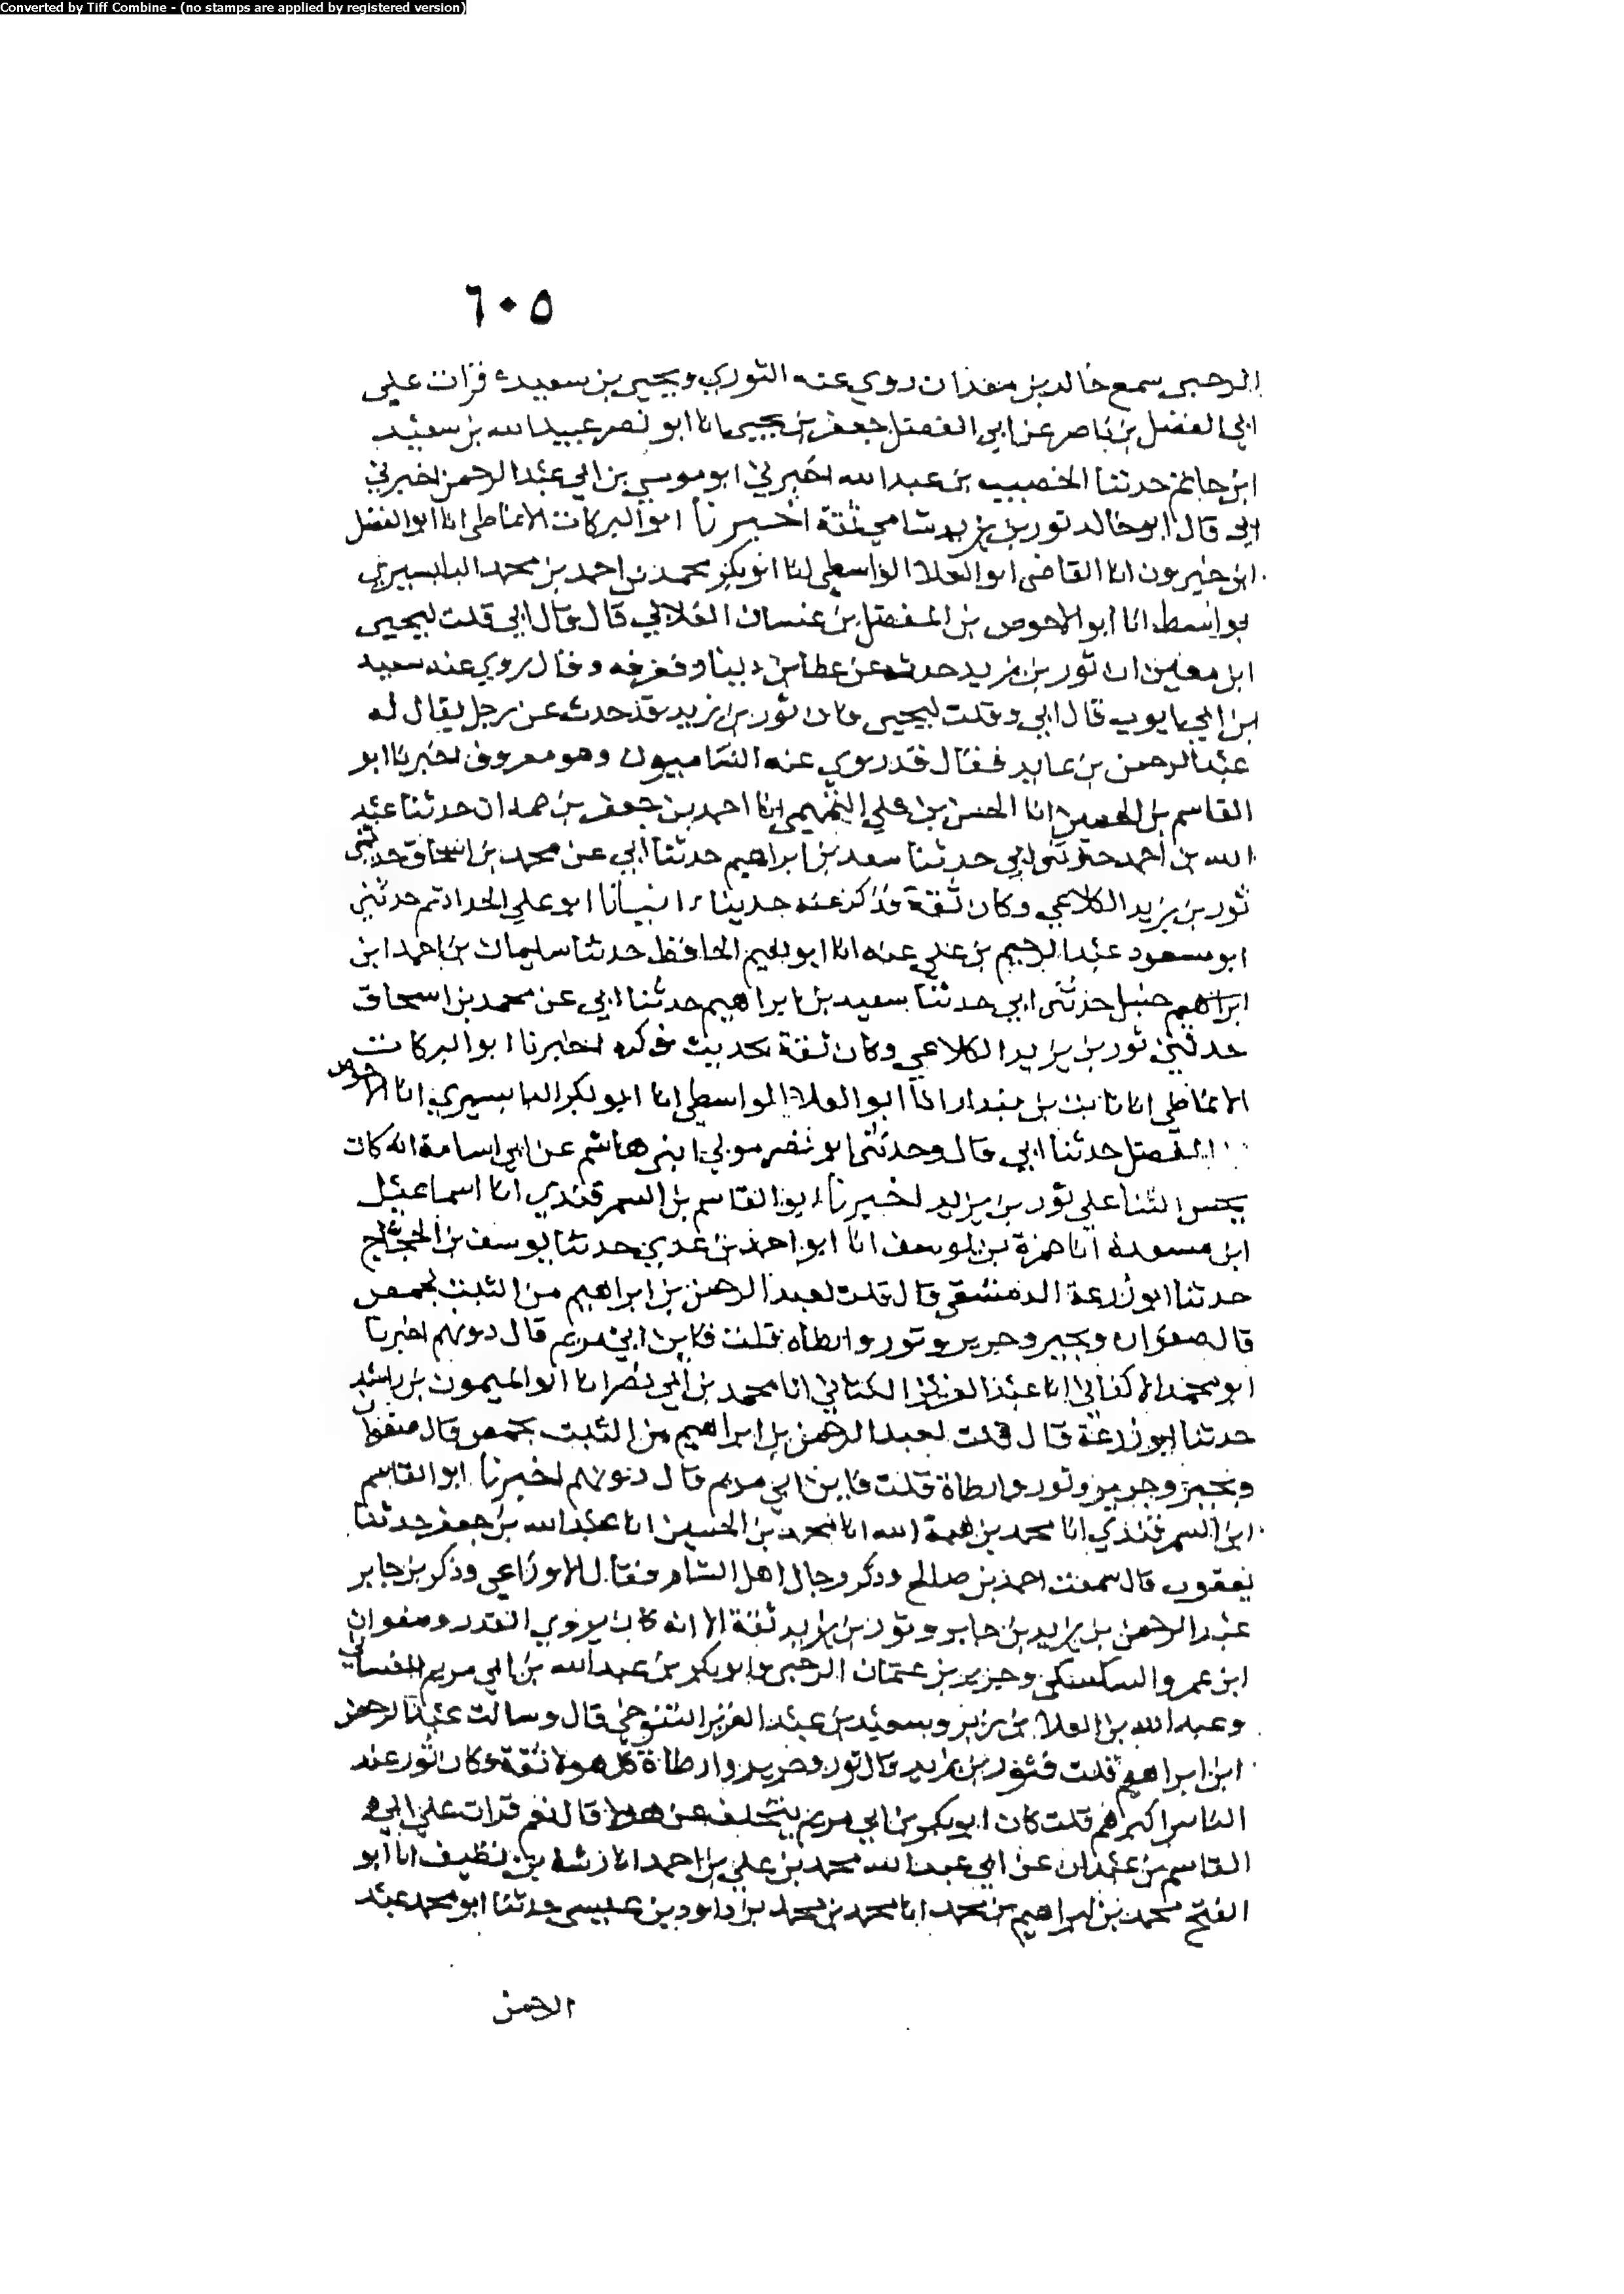 Converted by Tiff Combine - (no stamps are applied by registered version)
٦٠٥
الرحبي سمع خالد بن معدان روي عنه الثوري ويحيى بن سعيد قرات علي
ابي الفضل بن ناصر عن ابي الفضل جعفر بن يحيى انا ابو نصر عبيد الله بن سعيد
ابن حاتم حدثنا الخصيب بن عبد الله اخبرني ابو موسي بن ابي عبد الرحمن اخبرني
ابي قال ابو خالد ثور بن يزيد شامي ثقة اخبرنا ابو البركات الانماطي انا ابو الفضل
ابن خيرون انا القاضي ابو العلا الواسطي انا ابو بكر محمد بن احمد بن محمد البابسيري
بواسط انا ابو الاحوص بن المفضل بن غسان الغلابي قال قال ابي قلت ليحيى
ابن معين ان ثور بن يزيد حدث عن عطا بن دينار فعرفه وقال روي عنه سعيد
بن ابي ايوب قال ابي وقلت ليحيى فان ثور بن يزيد قد حدث عن رجل يقال له
عبد الرحمن بن عايد فقال قد روي عنه الشاميون وهو معروف اخبرنا ابو
القاسم بن الحصين انا الحسن بن علي التميمي انا احمد بن جعفر بن حمدان حدثنا عبد
الله بن احمد حدثني ابي حدثنا سعد بن ابراهيم حدثنا ابي عن محمد بن اسحاق حدثني
ثور بن يزيد الكلاعي وكان ثقة فذكر عنه حديثا انبانا ابو علي الحداد ثم حدثني
ابو مسعود عبد الرحيم بن علي عنه انا ابو نعيم الحافظ حدثنا سليمان بن احمد ابن
ابراهيم حنبل حدثني ابي حدثنا سعيد بن ابراهيم حدثنا ابي عن محمد بن اسحاق
حدثني ثور بن يزيد الكلاعي وكان ثقة بحديث ذكره اخبرنا ابو البركات
الانماطي انا ثابت بن بندار انا ابو العلا الواسطي انا ابو بكر البابسيري انا الاحوص
المفضل حدثنا ابي قال وحدثني ابو نضر مولي ابني هاشم عن ابي اسامة انه كان
يحسن الثنا علي ثور بن يزيد اخبرنا ابو القاسم بن السمرقندي انا اسماعيل
ابن مسعدة انا حمزة بن يوسف انا ابو احمد بن عدي حدثنا يوسف بن الحجاج
حدثنا ابو زرعة الدمشقي قال قلت لعبد الرحمن بن ابراهيم من الثبت بحمص
قال صفوان وبحير وحرير وثور وارطاه قلت فابن ابي مريم قال دونهم اخبرنا
ابو محمد الاكفاني انا عبد العزيز الكتاني انا محمد بن ابي نصر انا ابو الميمون بن راشد
حدثنا ابو زرعة قال قلت لعبد الرحمن بن ابراهيم من الثبت بحمص قال صفوان
وبحير وجرير وثور وارطاة قلت فابن ابي مريم قال دونهم اخبرنا ابو القاسم
ابن السمرقندي انا محمد بن هبة الله انا محمد بن الحسين انا عبد الله بن جعفر حدثنا
يعقوب قال سمعت احمد بن صالح وذكر رجال اهل الشام فقال الاوزاعي وذكر بن جابر
عبد الرحمن بن يزيد بن جابر وثور بن يزيد ثقة الا انه كان يروي القدر وصفوان
ابن عمرو السكسكي وحريز بن عثمان الرحبي وابو بكر بن عبد الله بن ابي مريم الغساني
وعبد الله بن العلا بن زبر وسعيد بن عبد العزيز التنوخي قال وسالت عبد الرحمن
ابن ابراهيم قلت فثور بن يزيد قال ثور وحرير وارطاة كل هولا ثقة وكان ثور عند
الناس اكبرهم قلت كان ابو بكر بن ابي مريم يتخلف عن هولا قال نعم قرات علي ابي
القاسم بن عبدان عن ابي عبد الله محمد بن علي بن احمد انا رشا بن نظيف انا ابو
الفتح محمد بن ابراهيم بن محمد انا محمد بن محمد بن داوود بن عيسي حدثنا ابو محمد عبد
الرحمن